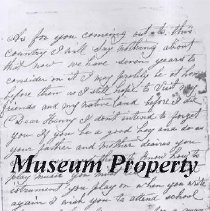 As for you comeing out to this
country I will say nothing about
that now we have seven years to
consider on it I may posibly be at home
before then as I still hope to visit
friends and my native land before I die
Dear Henry I dont intend to forget
you if you be a good boy and do as
your father and mother desires you
Museum Property
play music
you play on when you write
again I wish you to attend school